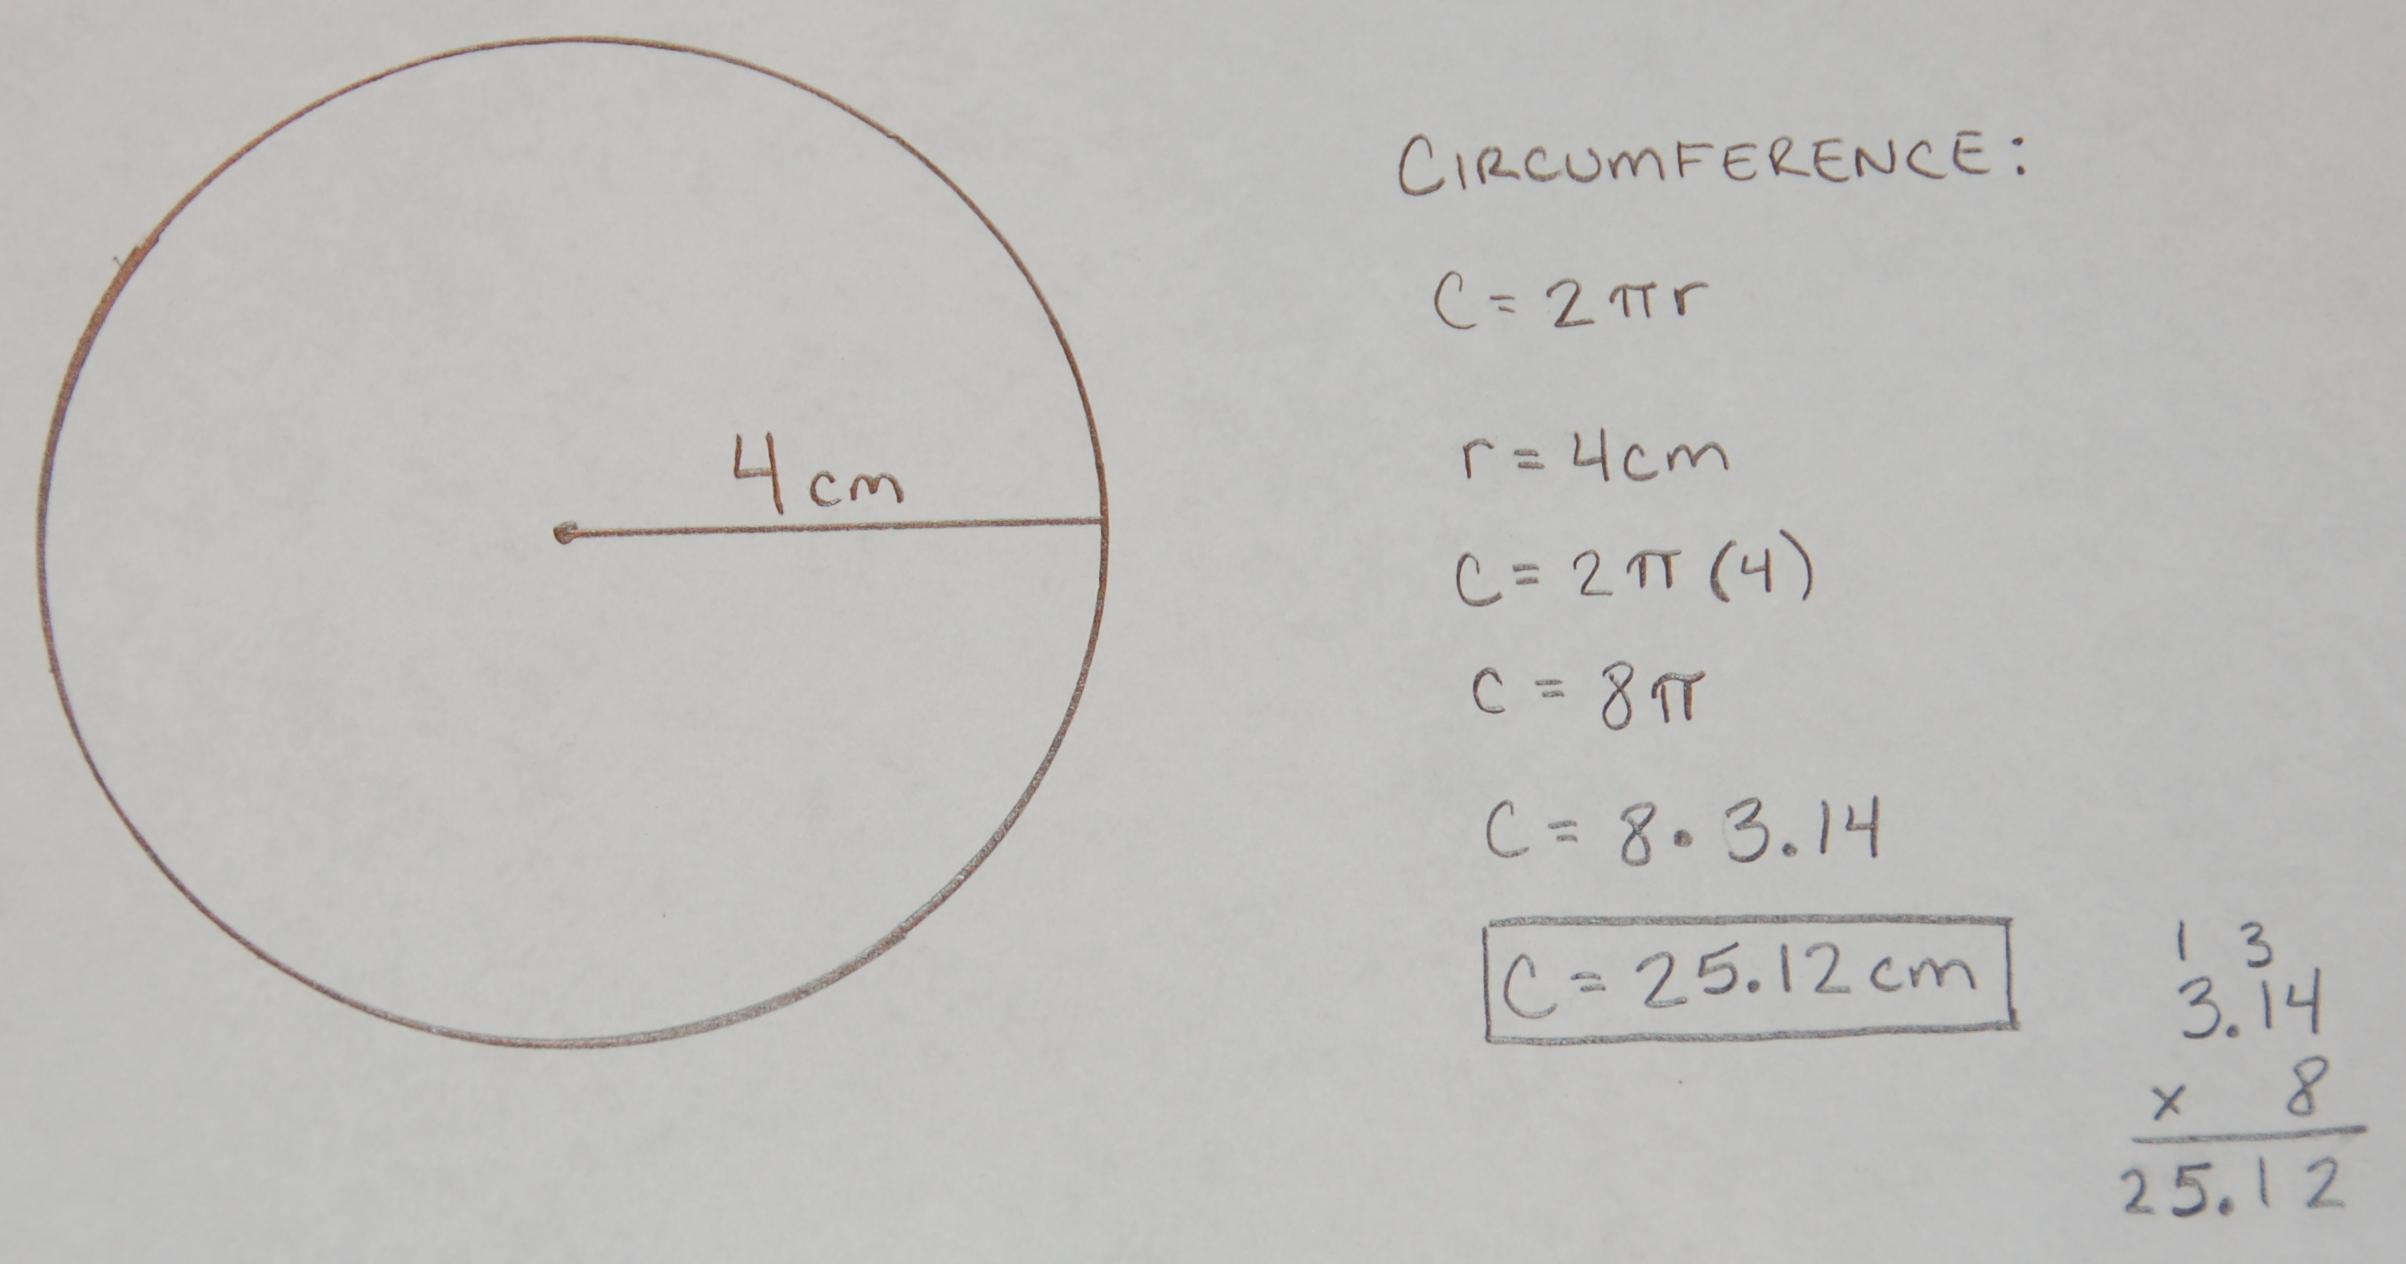 4 cm
CIRCUMFERENCE:
C = 2πr
r = 4cm
C = 2π (4)
C = 8π
C = 8 • 3.14
C = 25.12 cm
1 3
3.14
x 8
25.12